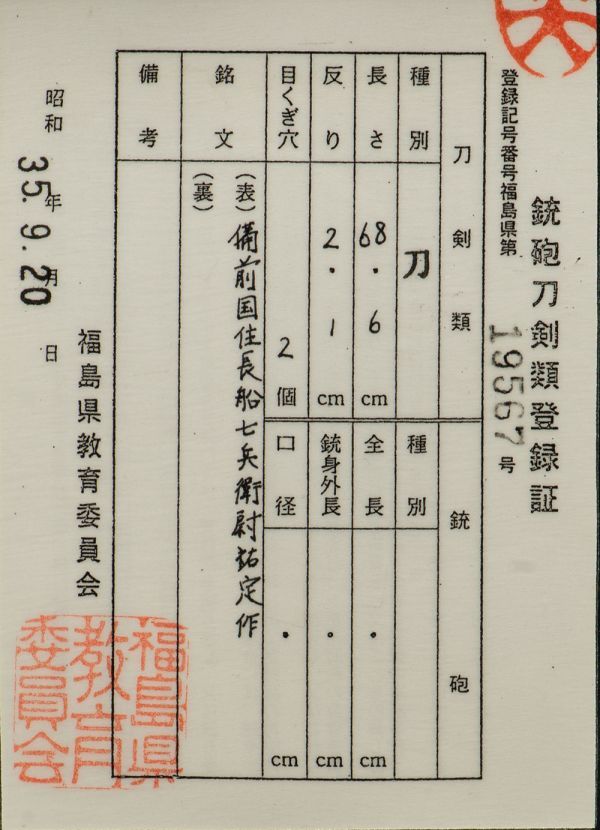 銃砲刀剣類登録証
登録記号番号福島県第
19567号
刀剣類
銃砲
種別
刀
種別
長さ
68.6cm
全長
.cm
反り
2.1cm
銃身外長
.cm
目くぎ穴
2個
口径
.cm
銘文
(表)備前国住長船七兵衛尉祐定作
(裏)
備考
昭和35年9月20日
福島県教育委員会
福島県
教育
委員会